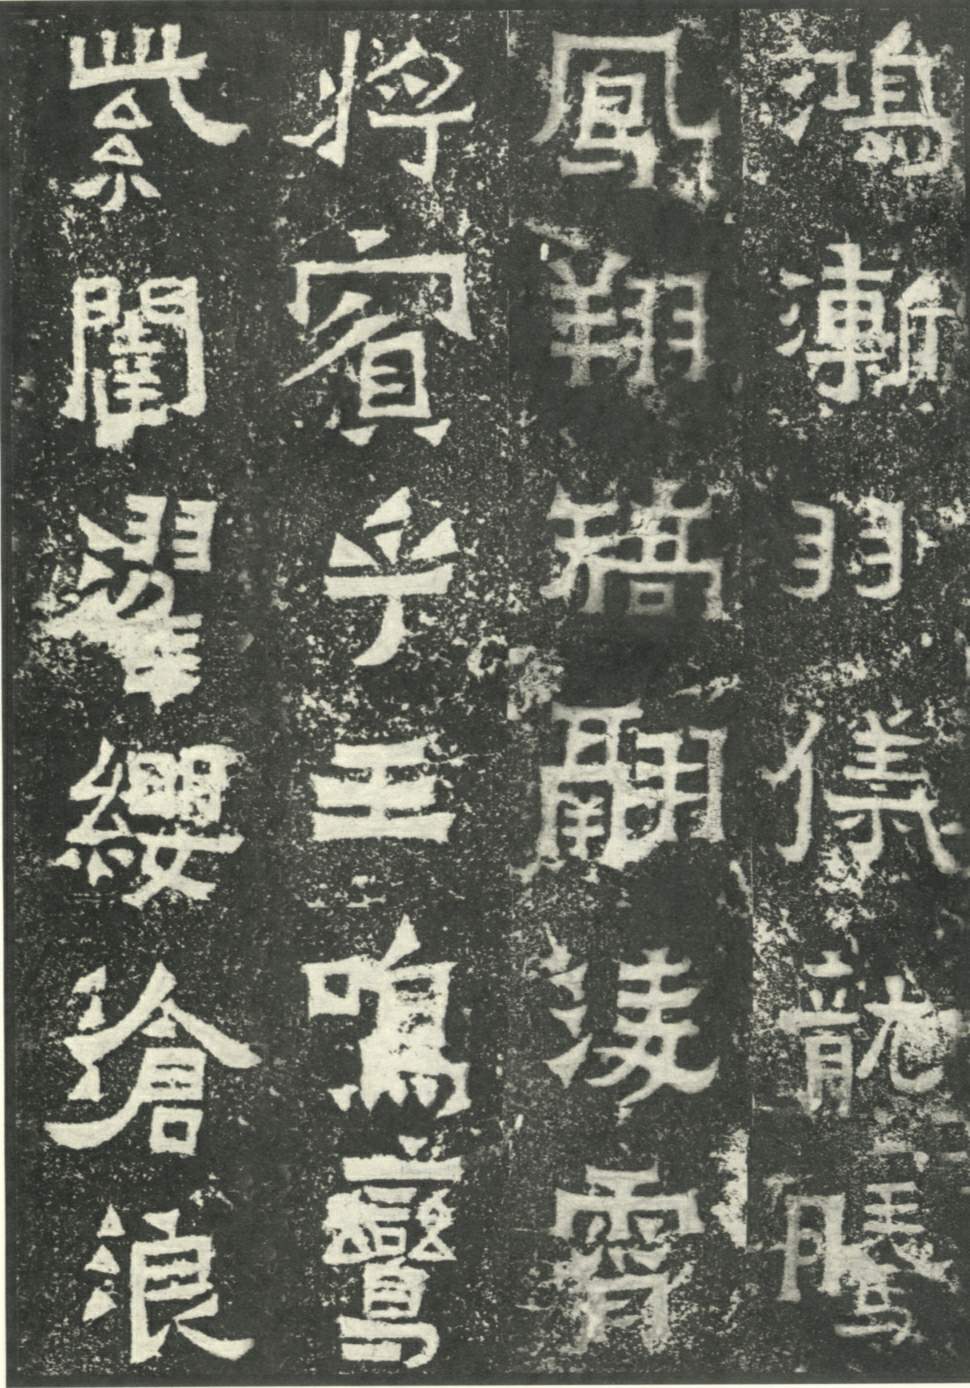 鴻漸羽儀龍騰
鳳翔矯翮淩霄
將賓乎王鳴鸞
紫闥濯纓滄浪